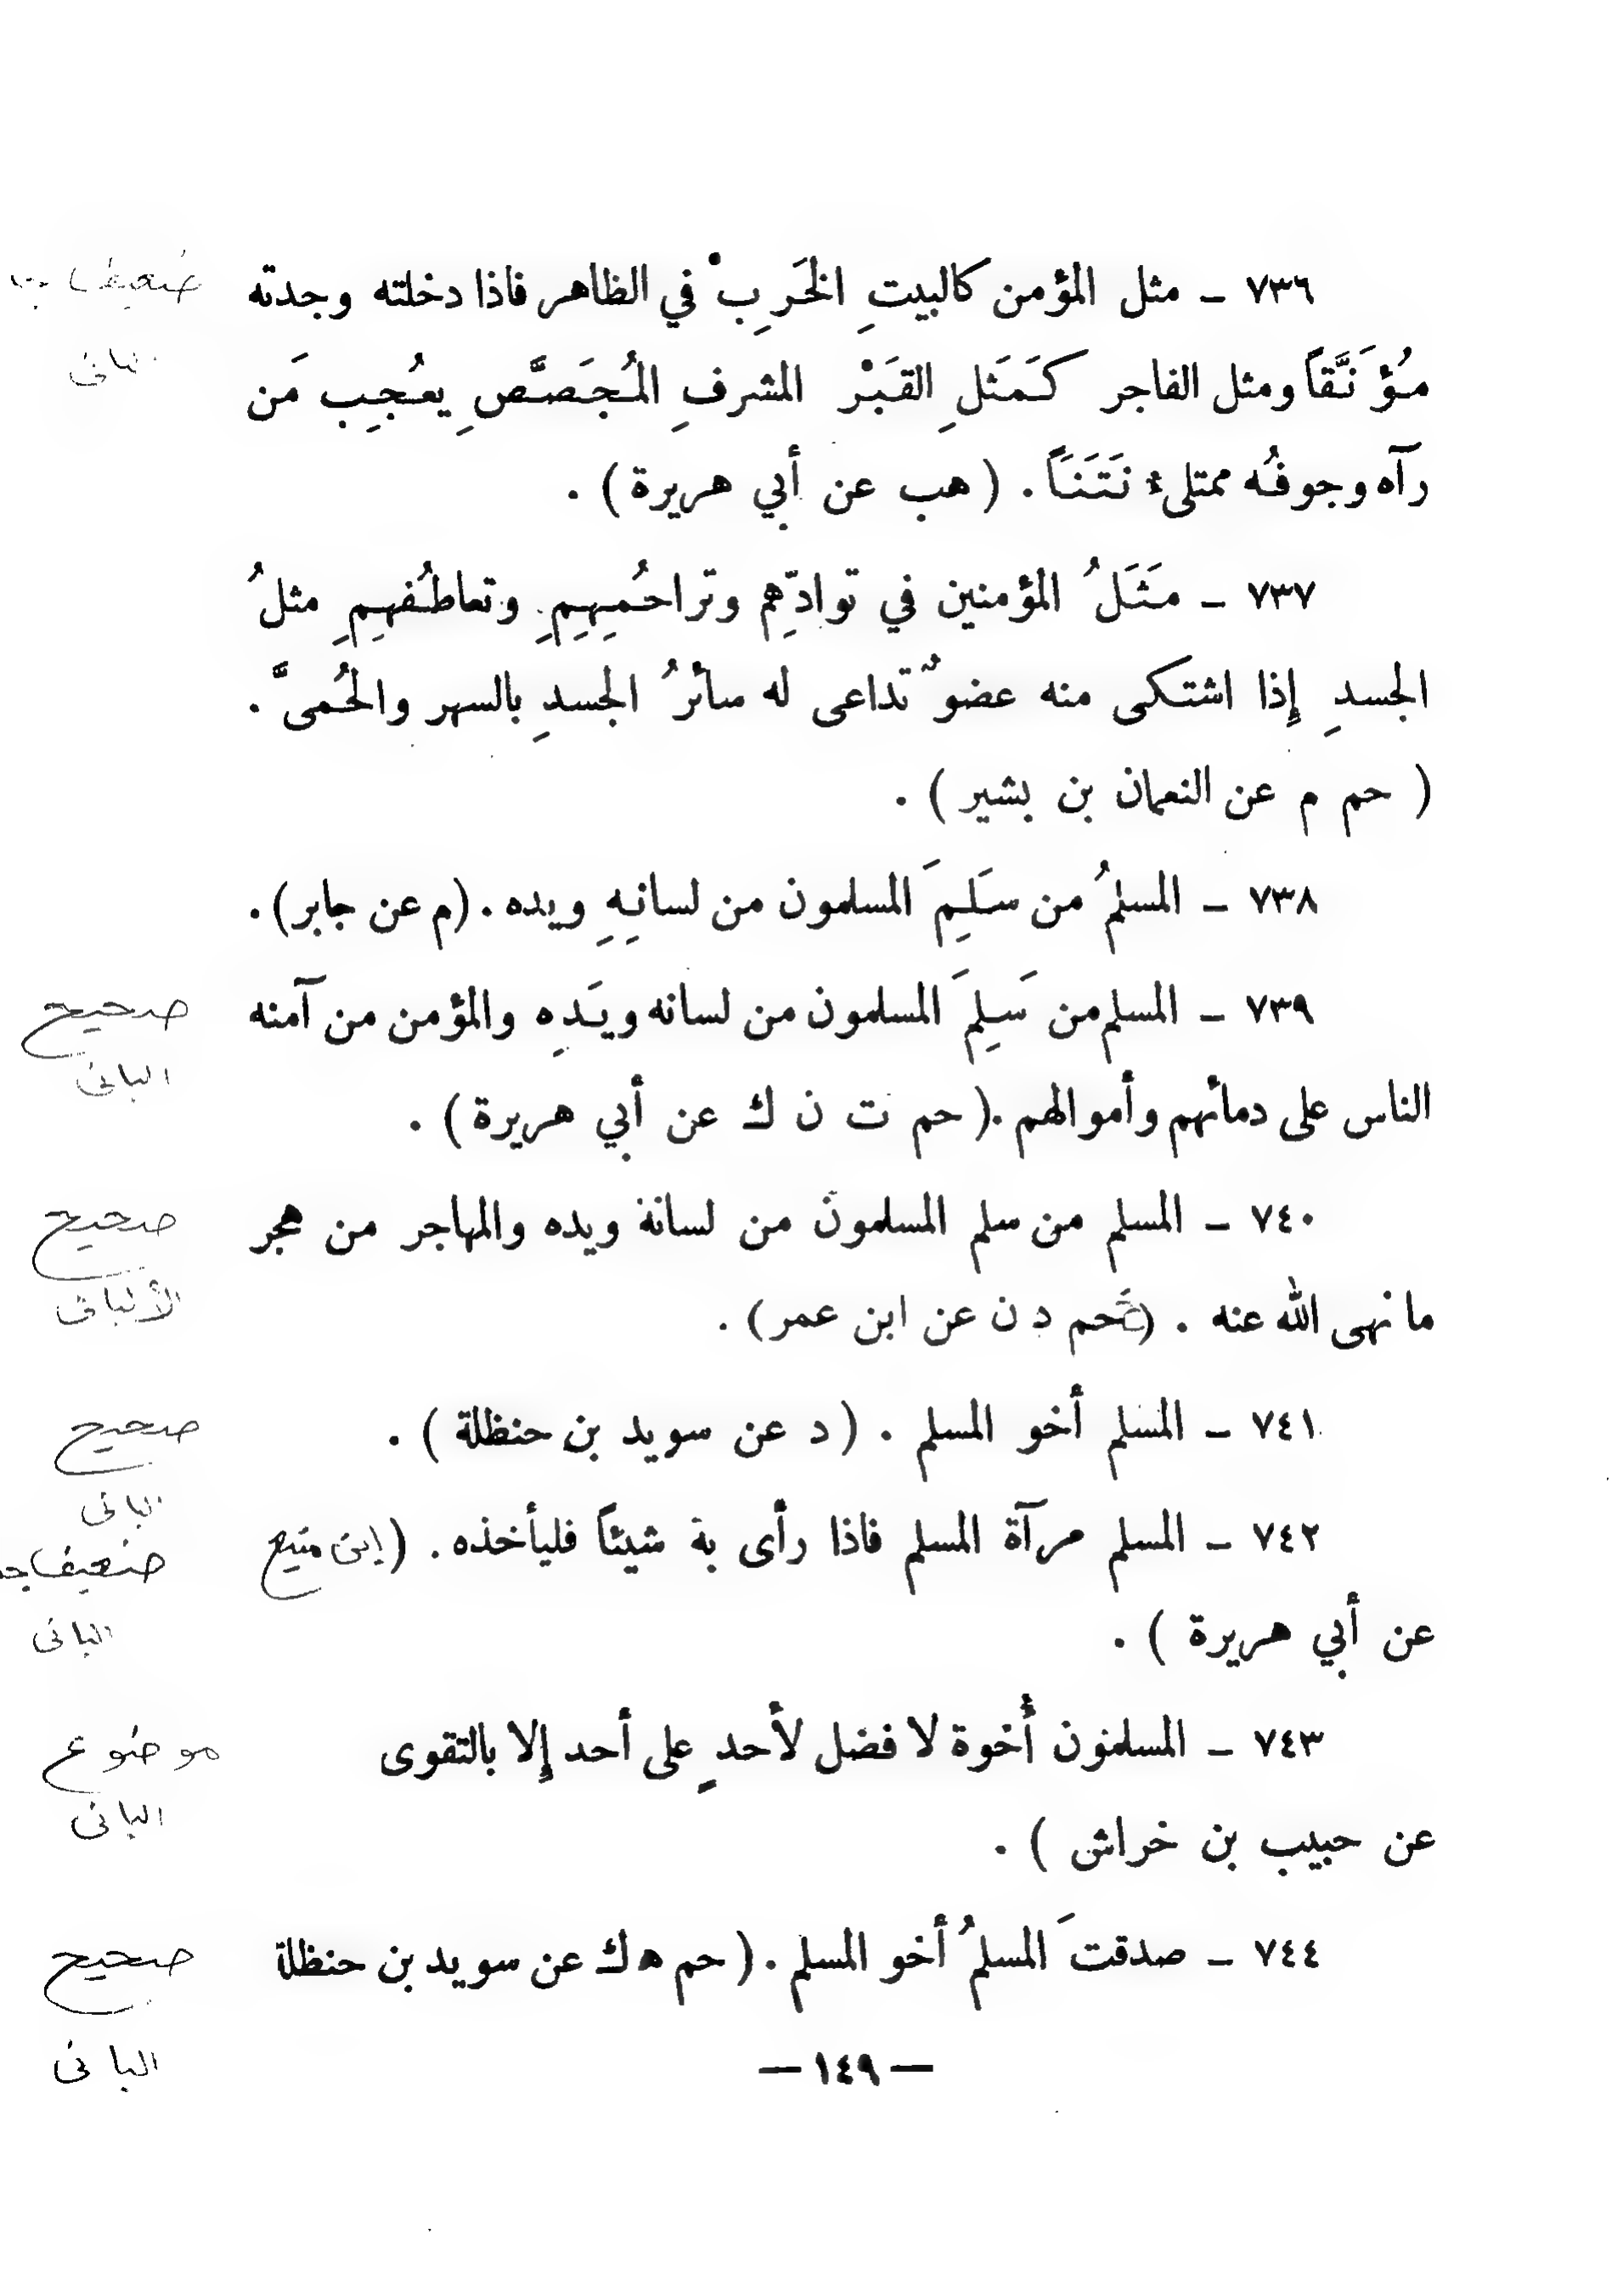 ٧٣٦ ـ مثل المؤمن كالبيتِ الخَرِبْ في الظاهر فاذا دخلته وجدته
ضعيف
مُؤَنَّقاً ومثل الفاجر كَمَثَلِ القَبْر المشرفِ المُجَصَّصِ يعُجِب مَن
البانى
رآه وجوفُه ممتلىء نَتَنَاً . ( هب عن أبي هريرة ) .
٧٣٧ ـ مَثَلُ المؤمنين في توادِّهم وتراحُمِهِمِ وتعاطُفهِمِ مثلُ
الجسدِ إِذا اشتكى منه عضوٌ تداعى له سائرُ الجسدِ بالسهر والحُمىَّ .
( حم م عن النعمان بن بشير ) .
٧٣٨ ـ المسلمُ من سَلِمَ المسلمون من لسانِهِ ويده . (م عن جابر) .
٧٣٩ ـ المسلم من سَلِمَ المسلمون من لسانه ويَدِه والمؤمن من آمنه
صحيح
البانى
الناس على دمائهم وأموالهم . ( حم ت ن ك عن أبي هريرة ) .
٧٤٠ ـ المسلم من سلم المسلمون من لسانة ويده والمهاجر من هجر
صحيح
الألبانى
ما نهى الله عنه . (خ حم د ن عن ابن عمر) .
٧٤١ ـ المسلم أخو المسلم . ( د عن سويد بن حنظلة ) .
صحيح
البانى
٧٤٢ ـ المسلم مرآة المسلم فاذا رأى بة شيئاً فليأخذه . ( ابن منيع
ضعيف جدا
البانى
عن أبي هريرة ) .
٧٤٣ ـ المسلمون أُخوة لا فضل لأحدٍ على أحد إلا بالتقوى
موضوع
البانى
عن حبيب بن خراش ) .
٧٤٤ ـ صدقتَ المسلمُ أخو المسلم . ( حم ه ك عن سويد بن حنظلة
صحيح
البانى
— ١٤٩ —